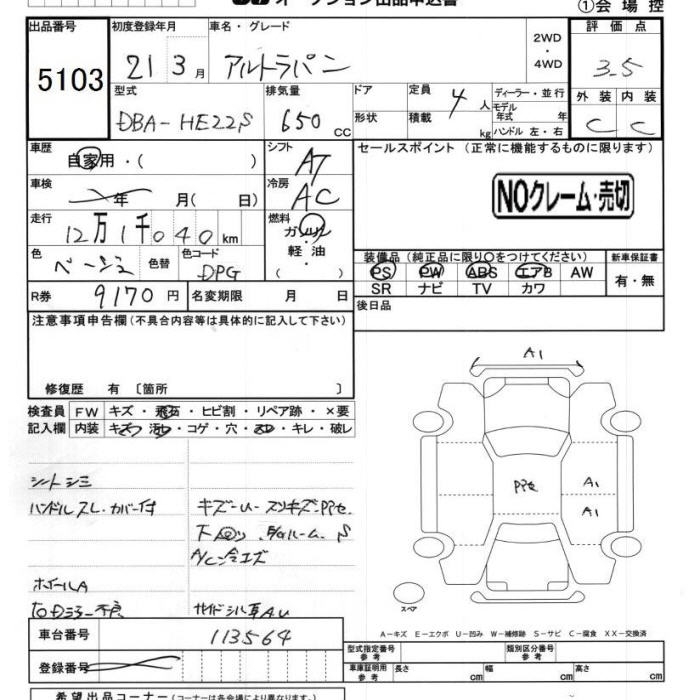 オークション出品申込書
①会場控
出品番号 初度登録年月 車名・グレード 評価点
5103 21 3月 アルトラパン 2WD ・ 4WD 3.5
型式 排気量 ドア 定員 4人 ディーラー・並行 外装 内装
DBA-HE22S 650 CC 形状 積載 kg モデル年式 年 ハンドル 左・右 C C
車歴 自家用・( ) シフト AT セールスポイント (正常に機能するものに限ります)
車検 年 月( 日) 冷房 AC NOクレーム・売切
走行 12万1千040km 燃料 ガソリン ・ 軽油 ( )
色 ベージュ 色替 色コード DPG
装備品(純正品に限り○をつけてください) 新車保証書
PS PW ABS エアB AW 有・無
SR ナビ TV カワ
R券 9170円 名変期限 月 日 後日品
注意事項申告欄(不具合内容等は具体的に記入して下さい)
修復歴 有 〔箇所 〕
検査員 FW キズ・飛石・ヒビ割・リペア跡・×要
記入欄 内装 キズ・汚れ・コゲ・穴・スレ・キレ・破レ
シートシミ
ハンドルスレ・カバー付 キズ・U・スリキズ・PPセ
下回り
A/C
ホイールA
不良 サイドシル AU
A1
PPセ A1
A1
スペア
A-キズ E-エクボ U-凹み W-補修跡 S-サビ C-腐食 XX-交換済
車台番号 113564
登録番号
型式指定番号 参考 類別区分番号 参考
車庫証明用 参考 長さ cm 幅 cm 高さ cm
希望出品コーナー(コーナーは各会場により異なります。)